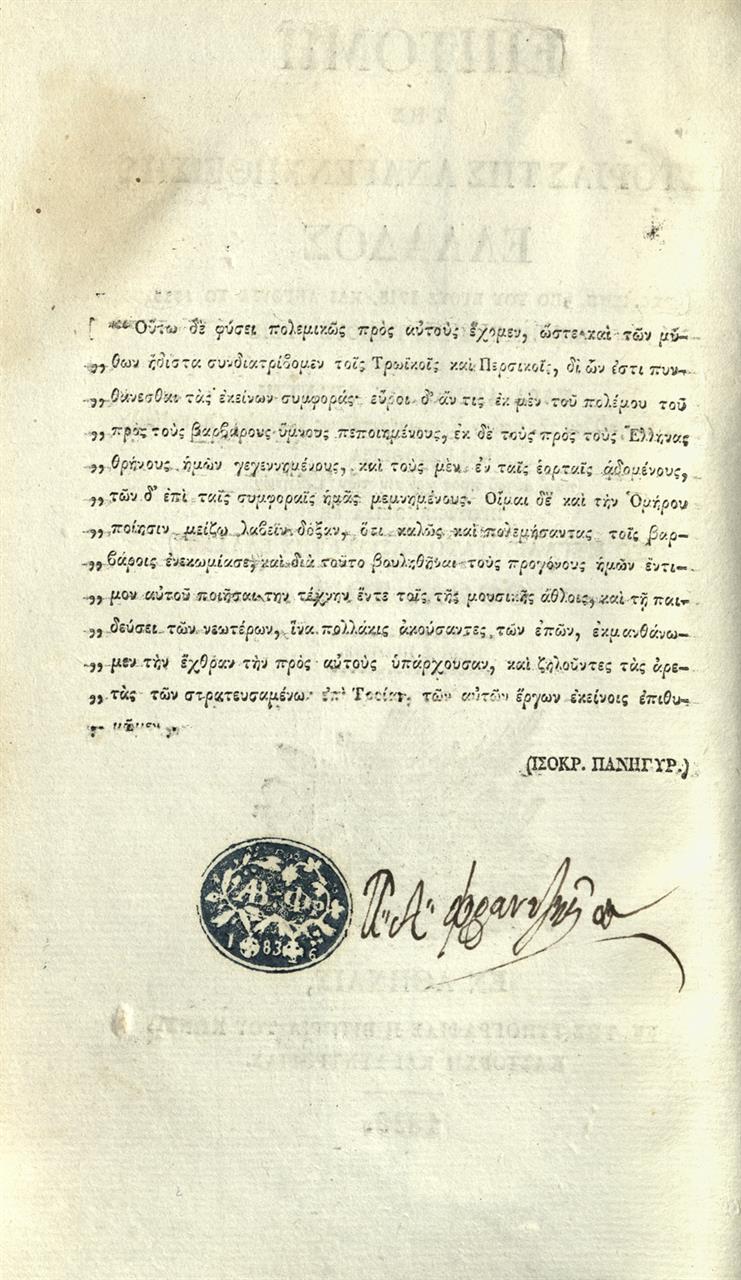 “Οὕτω δὲ φύσει πολεμικῶς πρὸς αὐτοὺς ἔχομεν, ὥστε καὶ τῶν μύ-
„ θων ἥδιστα συνδιατρίβομεν τοῖς Τρωϊκοῖς καὶ Περσικοῖς, δι ὧν ἐστι πυν-
„ θάνεσθαι τὰς ἐκείνων συμφοράς· εὕροι δ' ἄν τις ἐκ μὲν τοῦ πολέμου τοῦ
„ πρὸς τοὺς βαρβάρους ὕμνους πεποιημένους, ἐκ δὲ τοὺς πρὸς τοὺς Ἕλληνας
„ θρήνους ἡμῶν γεγεννημένους, καὶ τοὺς μὲν ἐν ταῖς ἑορταῖς ᾀδομένους,
„ τῶν δ' ἐπὶ ταῖς συμφοραῖς ἡμᾶς μεμνημένους. Οἶμαι δὲ καὶ τὴν Ὁμήρου
„ ποίησιν μείζω λαβεῖν δόξαν, ὅτι καλῶς καὶ πολεμήσαντας τοῖς βαρ-
„ βάροις ἐνεκωμίασε, καὶ διὰ τοῦτο βουληθῆναι τοὺς προγόνους ἡμῶν ἔντι-
„ μον αὐτοῦ ποιῆσαι την τέχνην ἔντε τοῖς τῆς μουσικῆς ἄθλοις, καὶ τῇ παι-
„ δεύσει τῶν νεωτέρων, ἵνα πολλάκις ἀκούσαντες τῶν ἐπῶν, ἐκμανθάνω-
„ μεν τὴν ἔχθραν τὴν πρὸς αὐτοὺς ὑπάρχουσαν, καὶ ζηλοῦντες τὰς ἀρε-
„ τὰς τῶν στρατευσαμένω ἐπὶ Τροίαν, τῶν αὐτῶν ἔργων ἐκείνοις ἐπιθυ-
(ΙΣΟΚΡ. ΠΑΝΗΓΥΡ.)
ΑΒ Φρ
1836